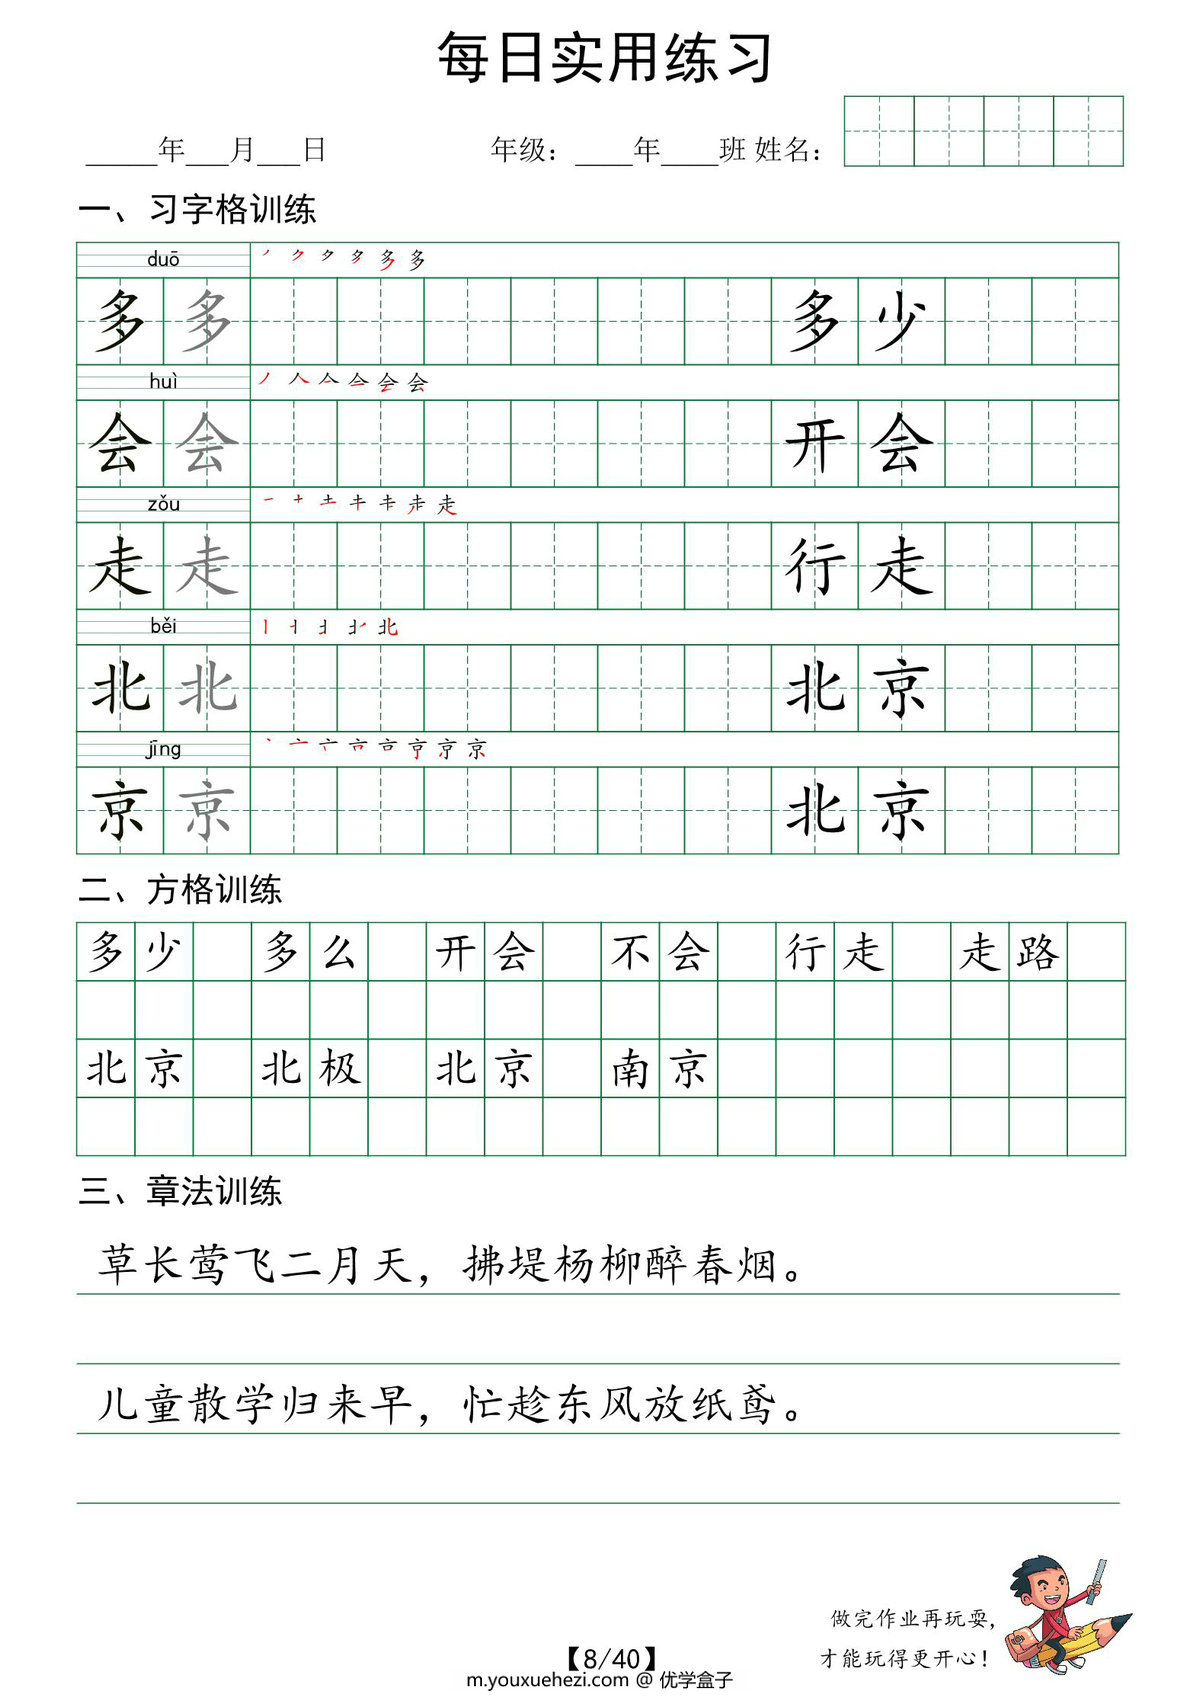 每日实用练习
_____年___月___日 年级：____年____班 姓名：
一、习字格训练
duō
多 多 多 少
huì
会 会 开 会
zǒu
走 走 行 走
běi
北 北 北 京
jīng
京 京 北 京
二、方格训练
多少 多么 开会 不会 行走 走路
北京 北极 北京 南京
三、章法训练
草长莺飞二月天，拂堤杨柳醉春烟。
儿童散学归来早，忙趁东风放纸鸢。
做完作业再玩耍，
才能玩得更开心！
【8/40】
m.youxuehezi.com @ 优学盒子